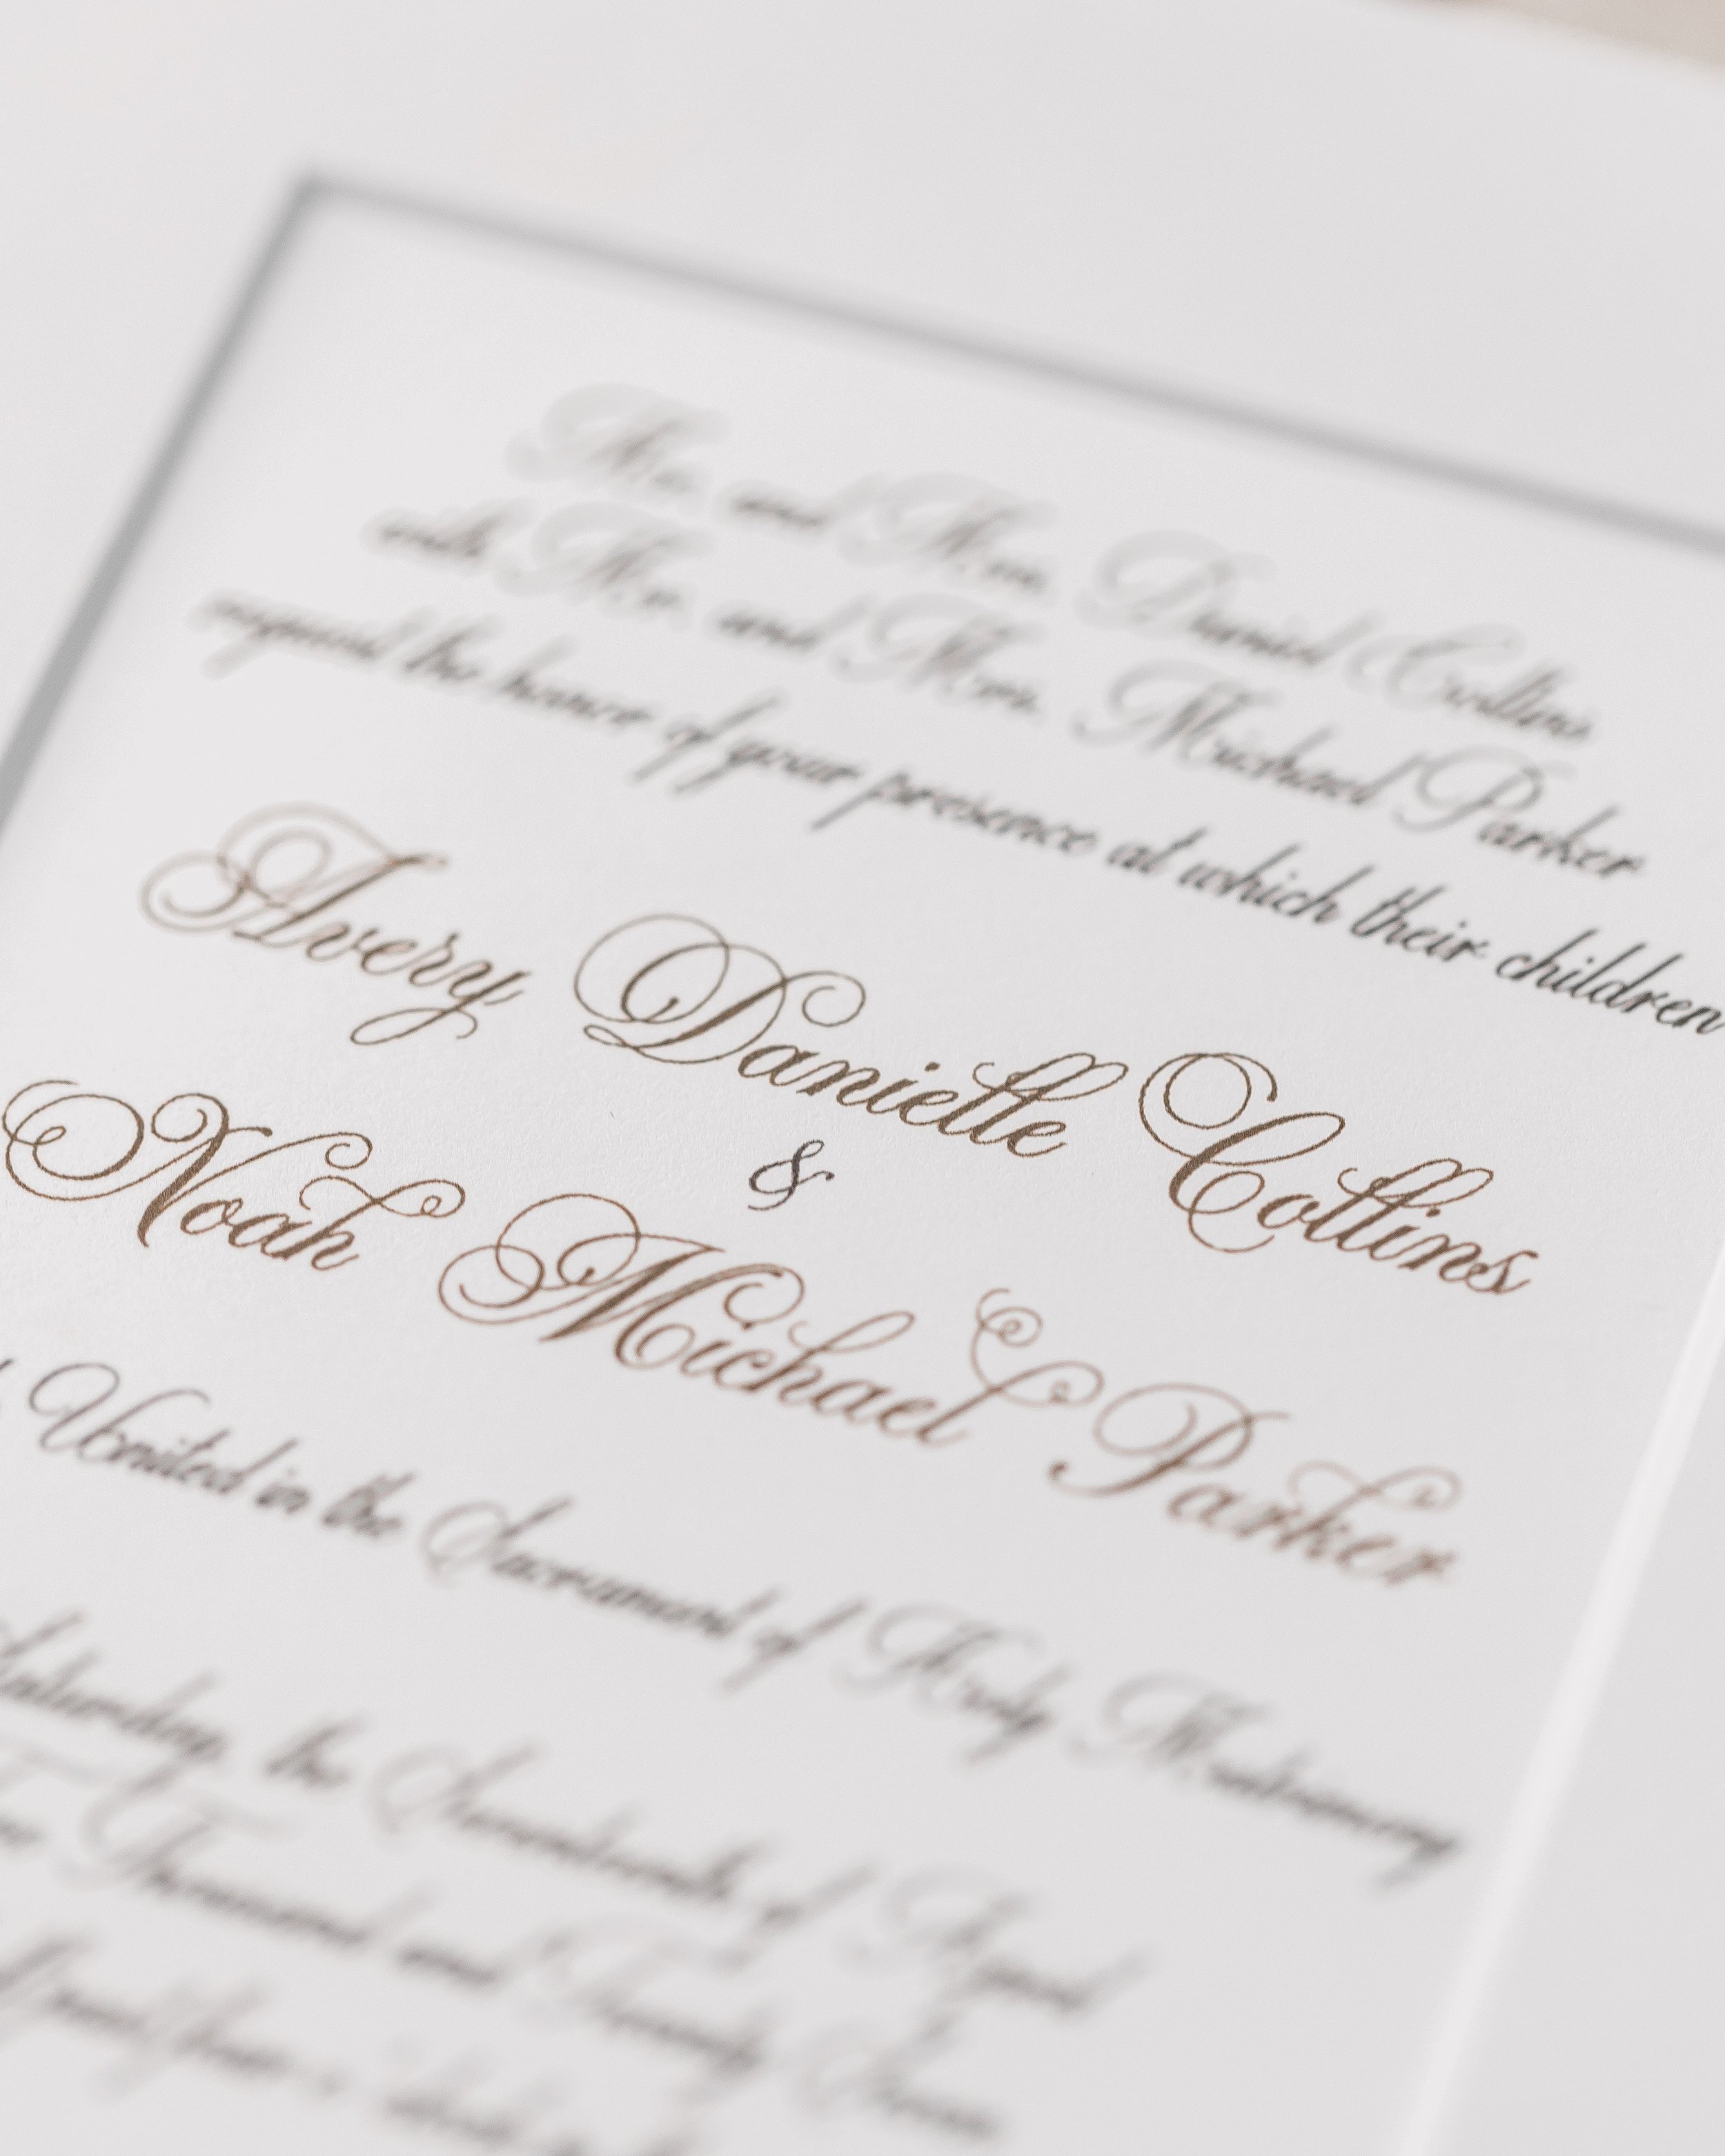 Mr. and Mrs. Daniel Collins
with Mr. and Mrs. Michael Parker
request the honor of your presence at which their children
Avery Danielle Collins
&
Noah Michael Parker
United in the Sacrament of Holy Matrimony
Saturday, the Seventeenth of April
Thousand and Twenty Seven